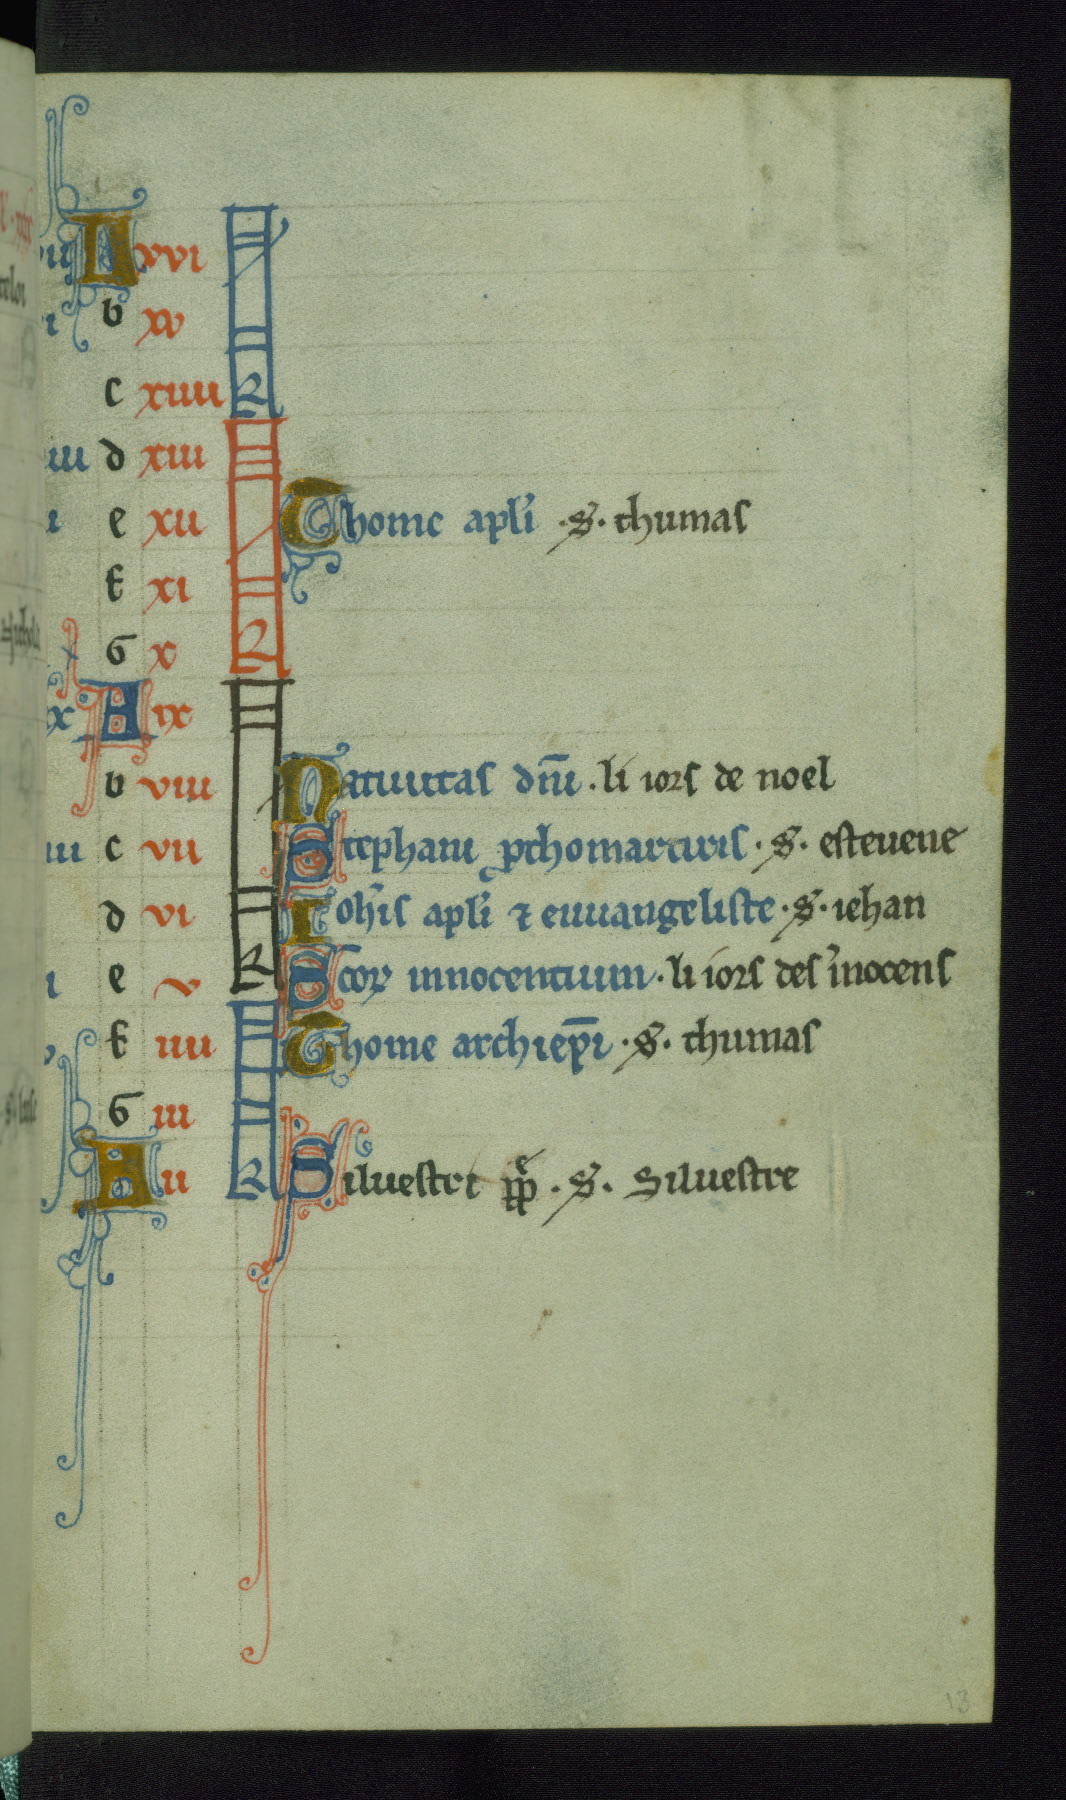 vii A xvi
i b xv
c xiiii kl
iiii d xiii
ii e xii Thome apl'i .S. thumas
f xi
x G x kl
ix A ix
b viii Natiuitas dn̄i .li iors de noel
iiii c vii Stephani ꝓthomartiris .S. esteuene
d vi Ioh'is apl'i ⁊ euuangeliste .S. iehan
ii e v kl Scōꝝ innocentium .li iors des īnocens
v f iiii Thome archiep̄i .S. thumas
G iii
A ii kl Siluestri pp̄ .S. Siluestre
13